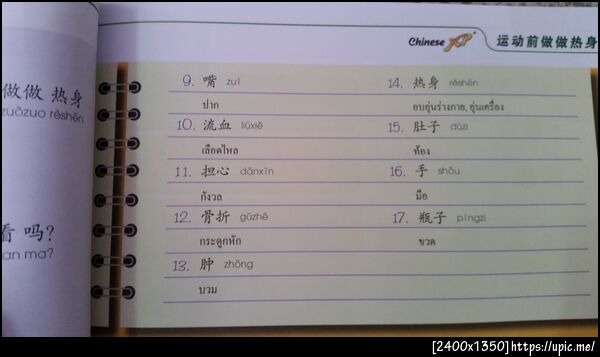 做做 热身
zuòzuo rèshēn
看 吗?
kàn ma?
Chinese XP
运动前做做热身
9. 嘴 zuǐ
ปาก
10. 流血 liúxiě
เลือดไหล
11. 担心 dānxīn
กังวล
12. 骨折 gǔzhé
กระดูกหัก
13. 肿 zhǒng
บวม
14. 热身 rèshēn
อบอุ่นร่างกาย, อุ่นเครื่อง
15. 肚子 dùzi
ท้อง
16. 手 shǒu
มือ
17. 瓶子 píngzi
ขวด
[2400x1350]https://upic.me/